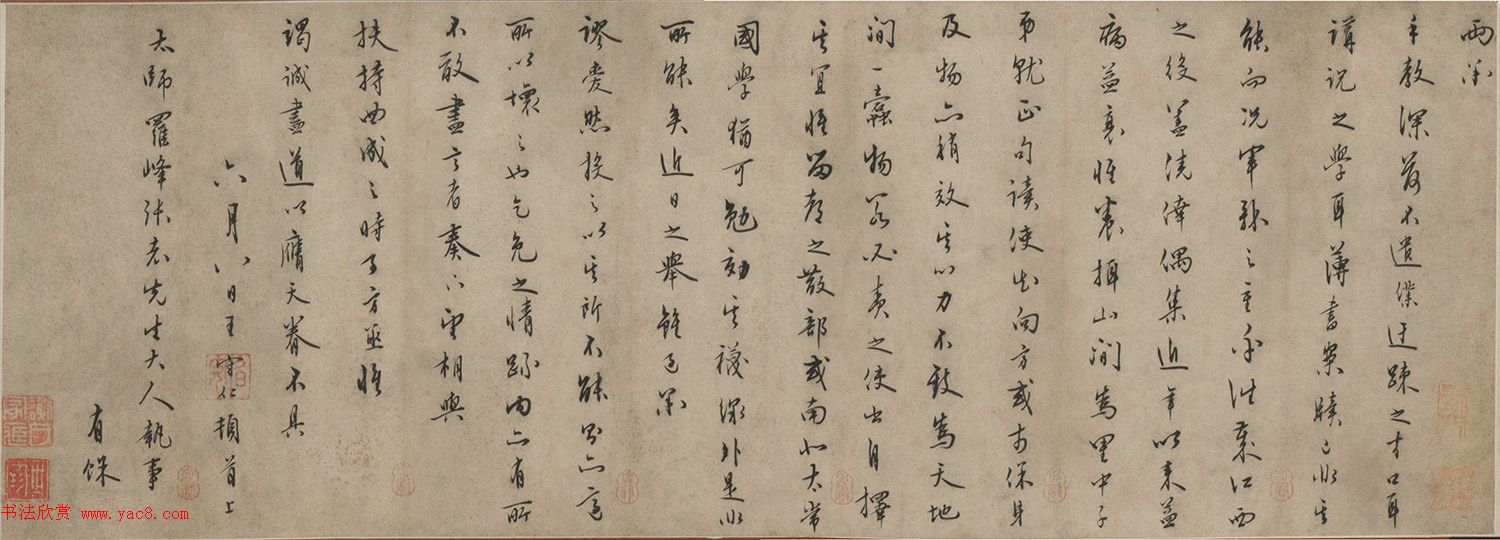 兩承
手教深荷不遺僕迂疎之才口耳
講說之學耳薄書案牘已非其
能而況軍旅之重乎往歲江西
之役盖僥倖偶集近年以来益
病益衰惟養拙山間為里中子
弟就正句讀使知向方或于保身
及物亦稍效其心力不致為天地
間一蠹物若必責之使出自擇
其宜惟留都之散部或南北太常
國學猶可勉効其襪線外是非
所能矣近日之舉雖過承
謬愛然投之以其所不能則亦適
所以壞之也乞免之情疏内亦有所
不敢盡言者奏下望相與
扶持曲成之時事方亟惟
竭誠盡道以膺天眷不具
六月八日王守仁頓首上
太師羅峰張老先生大人執事
有餘
书法欣赏 www.yac8.com